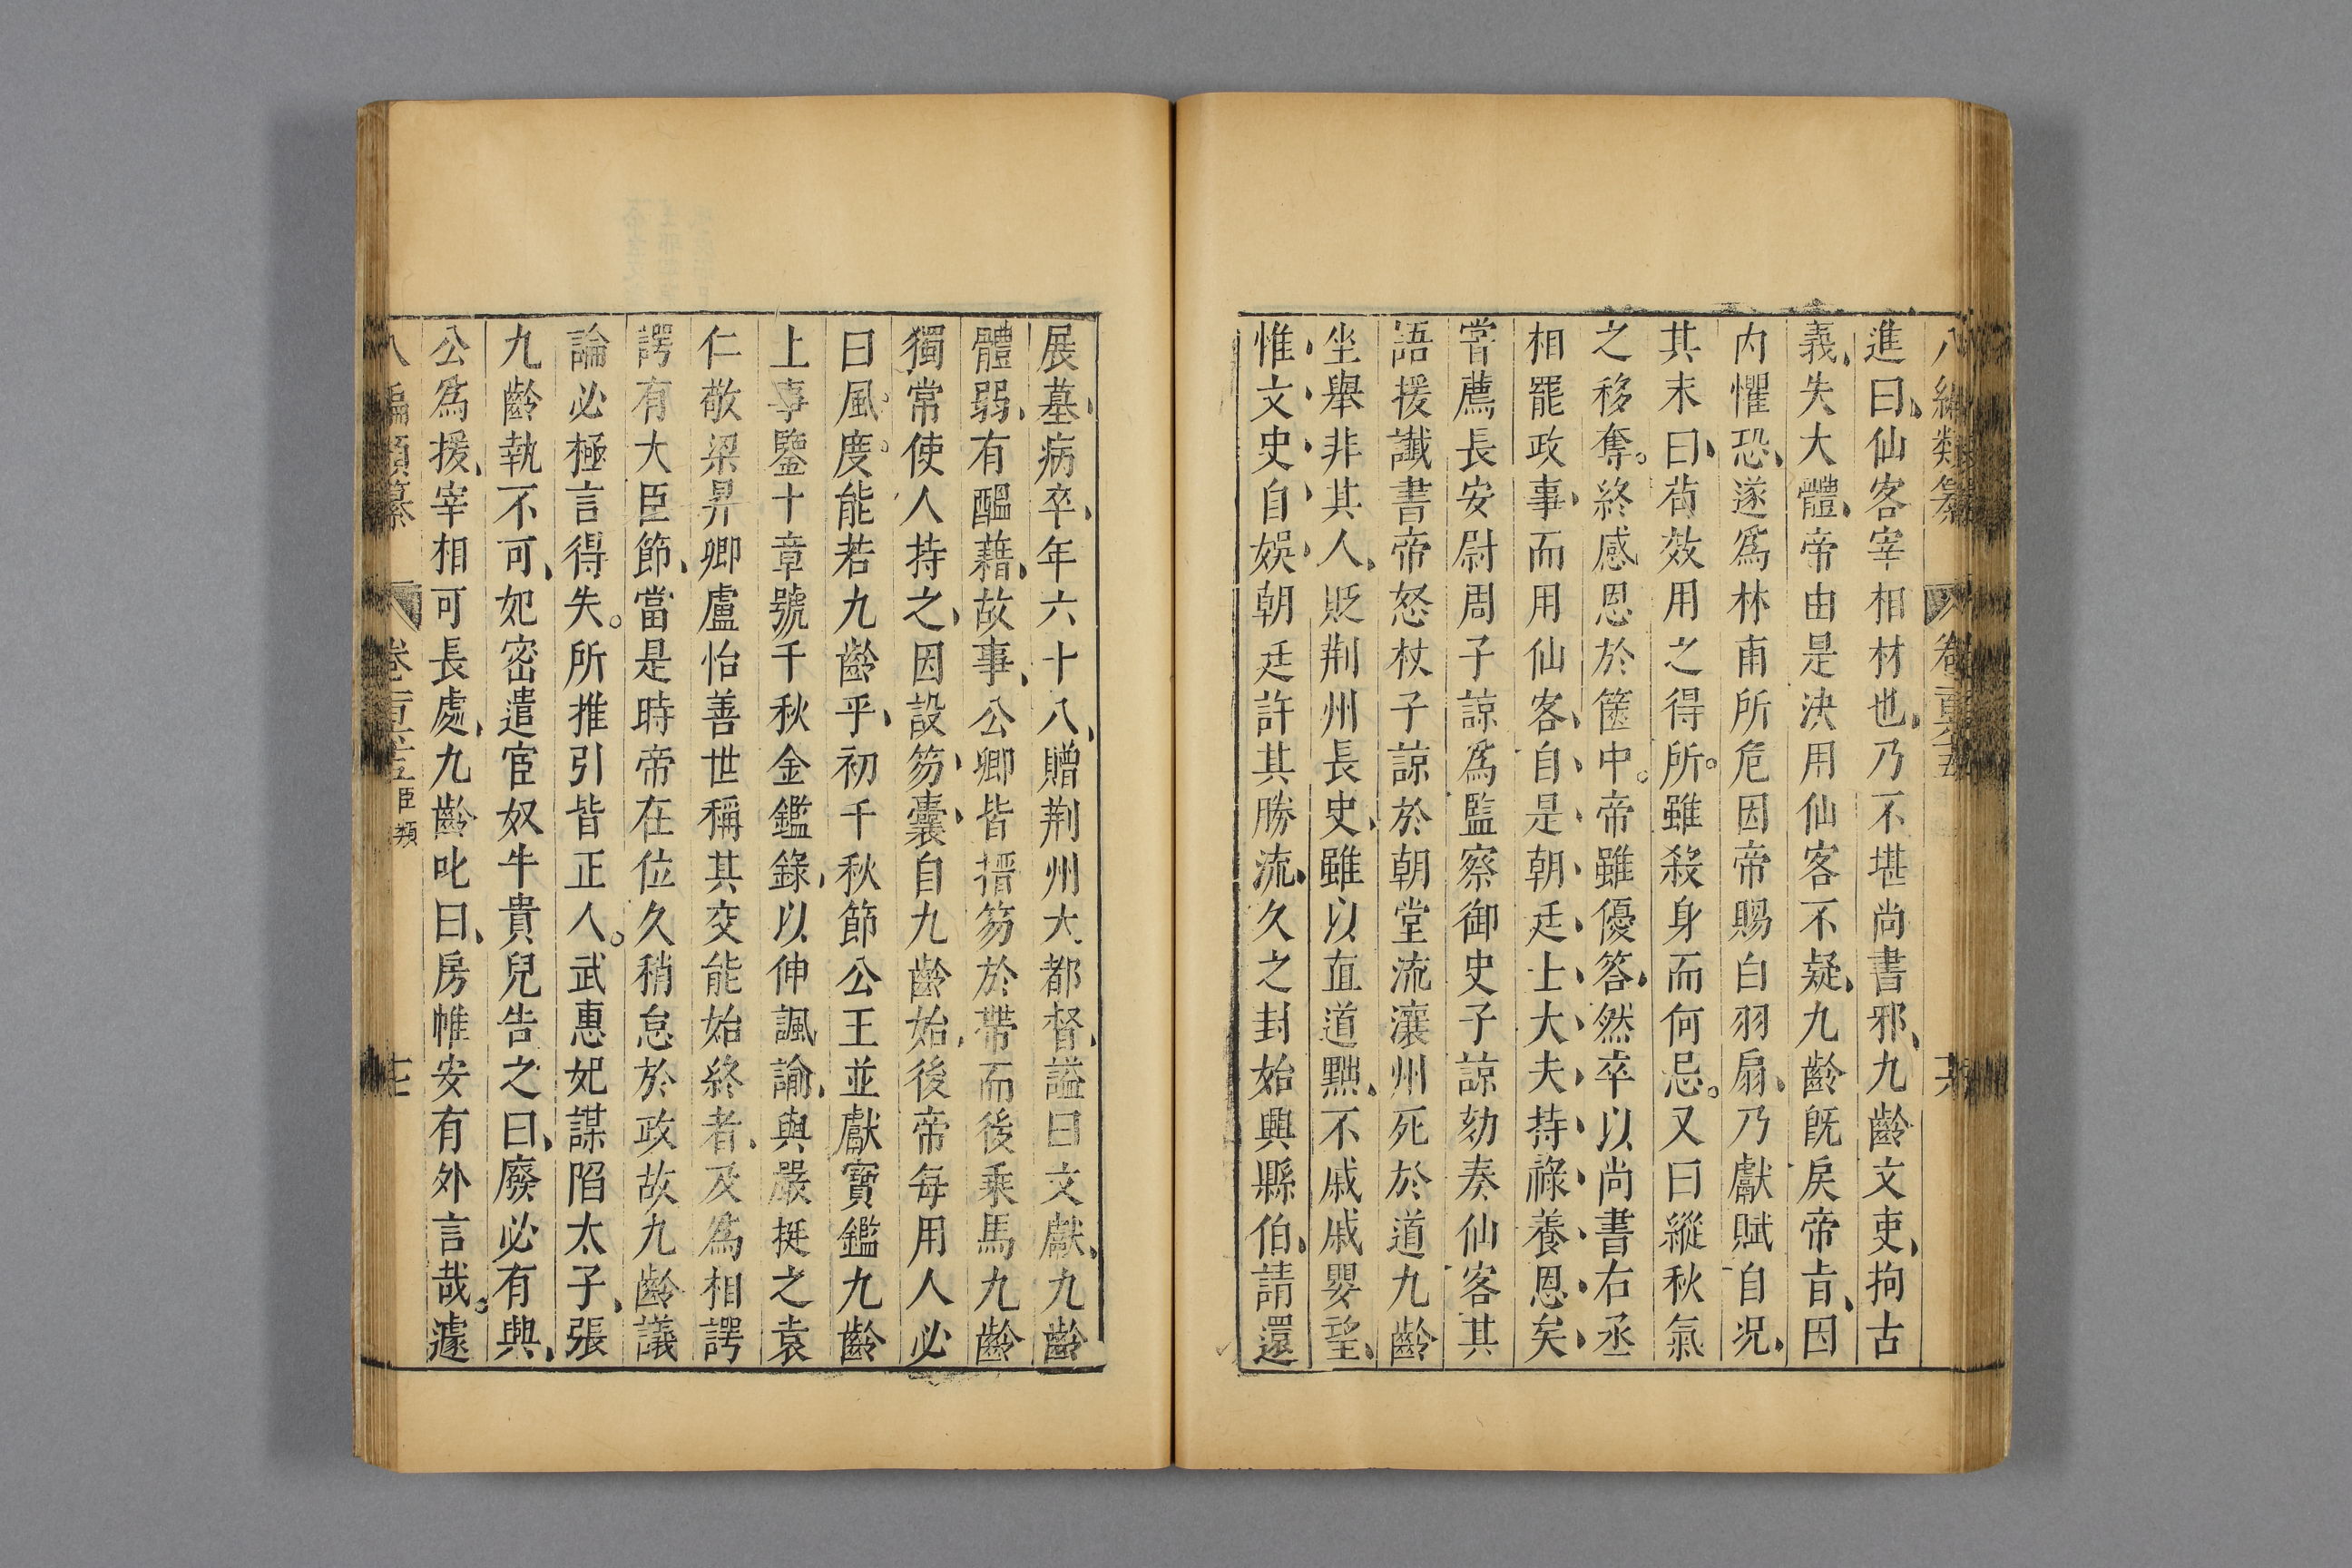 八編類纂 卷 十六
進曰仙客宰相材也乃不堪尚書邪九齡文吏拘古
義失大體帝由是決用仙客不疑九齡旣戾帝旨因
内懼恐遂爲林甫所危因帝賜白羽扇乃獻賦自况
其末曰苟效用之得所。雖殺身而何忌。又曰縱秋氣
之移奪。終感恩於篋中。帝雖優答然卒以尚書右丞
相罷政事而用仙客自是朝廷士大夫持祿養恩矣
嘗薦長安尉周子諒爲監察御史子諒劾奏仙客其
語援讖書帝怒杖子諒於朝堂流瀼州死於道九齡
坐舉非其人貶荆州長史雖以直道黜不戚戚嬰望
惟文史自娛朝廷許其勝流久之封始興縣伯請還
展墓病卒年六十八贈荆州大都督謚曰文獻九齡
體弱有醞藉故事公卿皆搢笏於帶而後乘馬九齡
獨常使人持之因設笏囊自九齡始後帝每用人必
曰風。度。能若九齡乎初千秋節公王並獻寶鑑九齡
上事鑒十章號千秋金鑑錄以伸諷諭與嚴挺之袁
仁敬梁昇卿盧怡善世稱其交能始終者及爲相諤
諤有大臣節當是時帝在位久稍怠於政故九齡議
論必極言得失。所推引皆正人。武惠妃謀陷太子張
九齡執不可妃密遣宦奴牛貴兒告之曰廢必有興
公爲援宰相可長處九齡叱曰房帷安有外言哉。遽
八編類纂 卷 臣類 十七